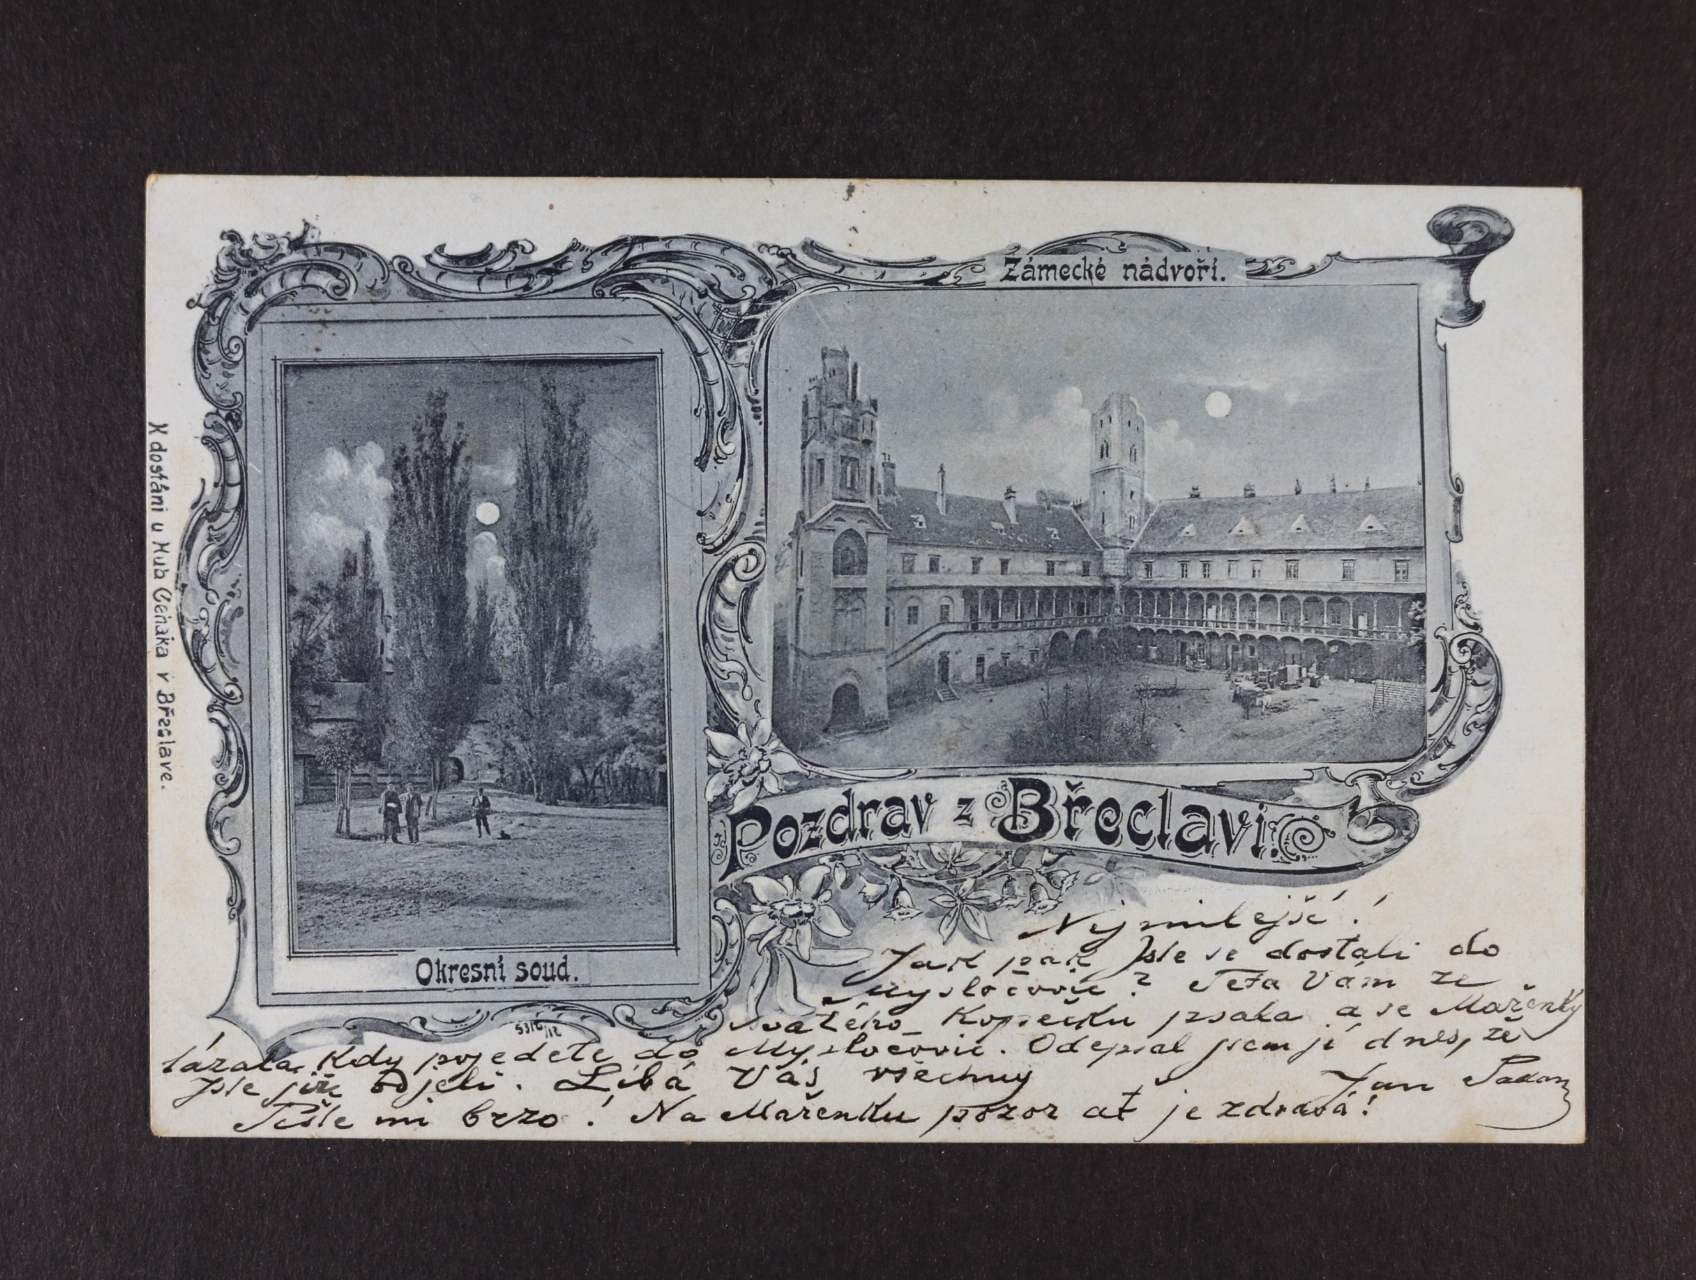 Zámecké nádvoří.
K dostání u Hub. v Břeslave.
Okresní soud.
Pozdrav z Břeclavi.
Nejmilejší!
Jak pak jste se dostali do
Myslocovic? Teta Vám ze
svatého Kopečku psala a se Mařenky
tázala, kdy pojedete do Myslocovic. Odepsal jsem jí dnes, že
jste již odjeli. Líbá Vás všechny Jan
Pište mi brzo! Na Mařenku pozor ať je zdravá!